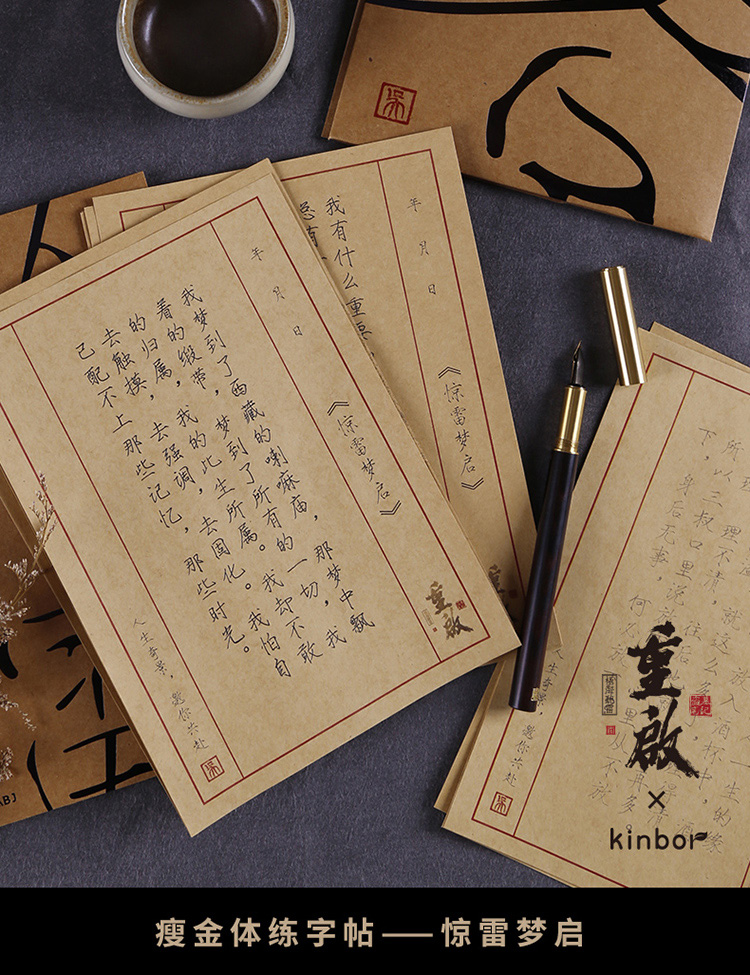 年 月 日
《惊雷梦启》
我梦到了西藏的喇嘛庙，那梦中飘
着的缎带，梦到了所有的一切，我
的归属，我的此生所属。我却不敢
去触摸，去强调，去固化。我怕自
己配不上那些记忆，那些时光。
人生奇景，邀你共处
重啟
年 月 日
《惊雷梦启》
我有什么重
人生奇景，邀你共处
理不清，就这么
身后无事，
重啟
×
kinbor
瘦金体练字帖——惊雷梦启